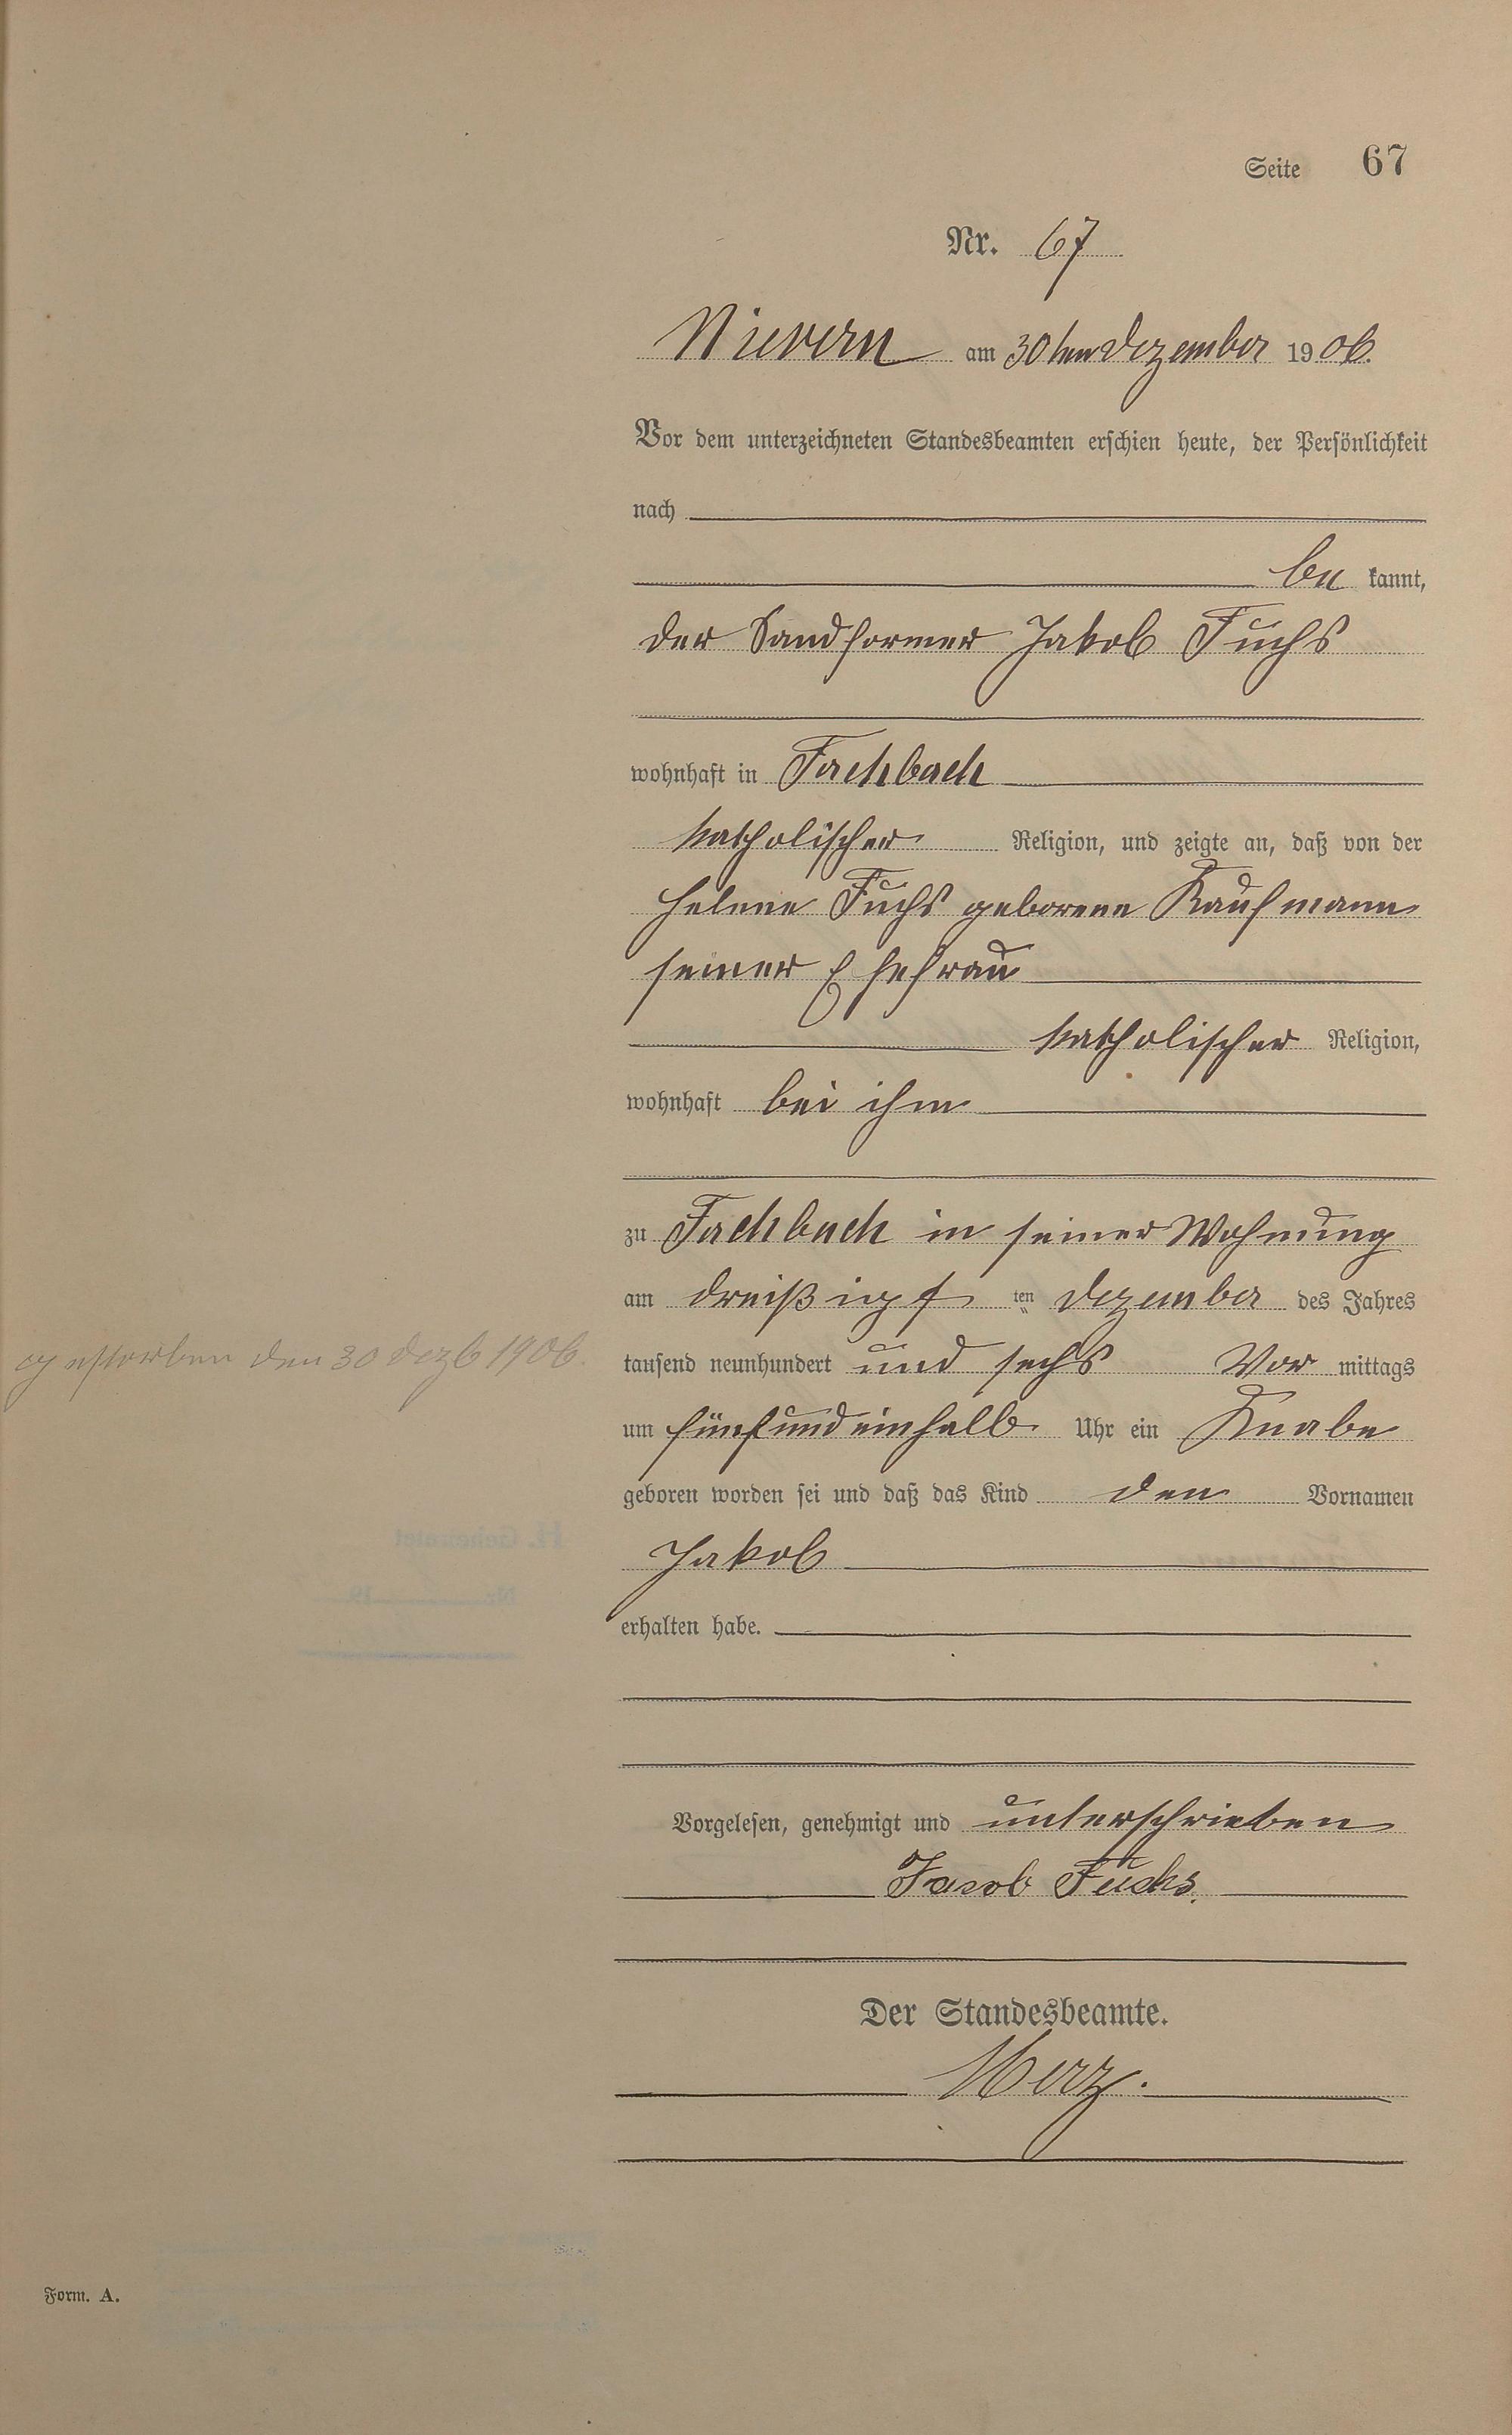 Seite 67
Nr. 67
Nievern am 30ten Dezember 1906.
Vor dem unterzeichneten Standesbeamten erschien heute, der Persönlichkeit
nach
be kannt,
der Sandformer Jakob Fuchs
wohnhaft in Fachbach
katholischer Religion, und zeigte an, daß von der
Helene Fuchs geborene Kaufmann
seiner Ehefrau
katholischer Religion,
wohnhaft bei ihm
zu Fachbach in seiner Wohnung
am dreißigst ten Dezember des Jahres
gestorben den 30 Dezb 1906.
tausend neunhundert und sechs Vor mittags
um fünfundeinhalb Uhr ein Knabe
geboren worden sei und daß das Kind den Vornamen
Jakob
erhalten habe.
Vorgelesen, genehmigt und unterschrieben
Jacob Fuchs.
Der Standesbeamte.
Merz.
Form. A.